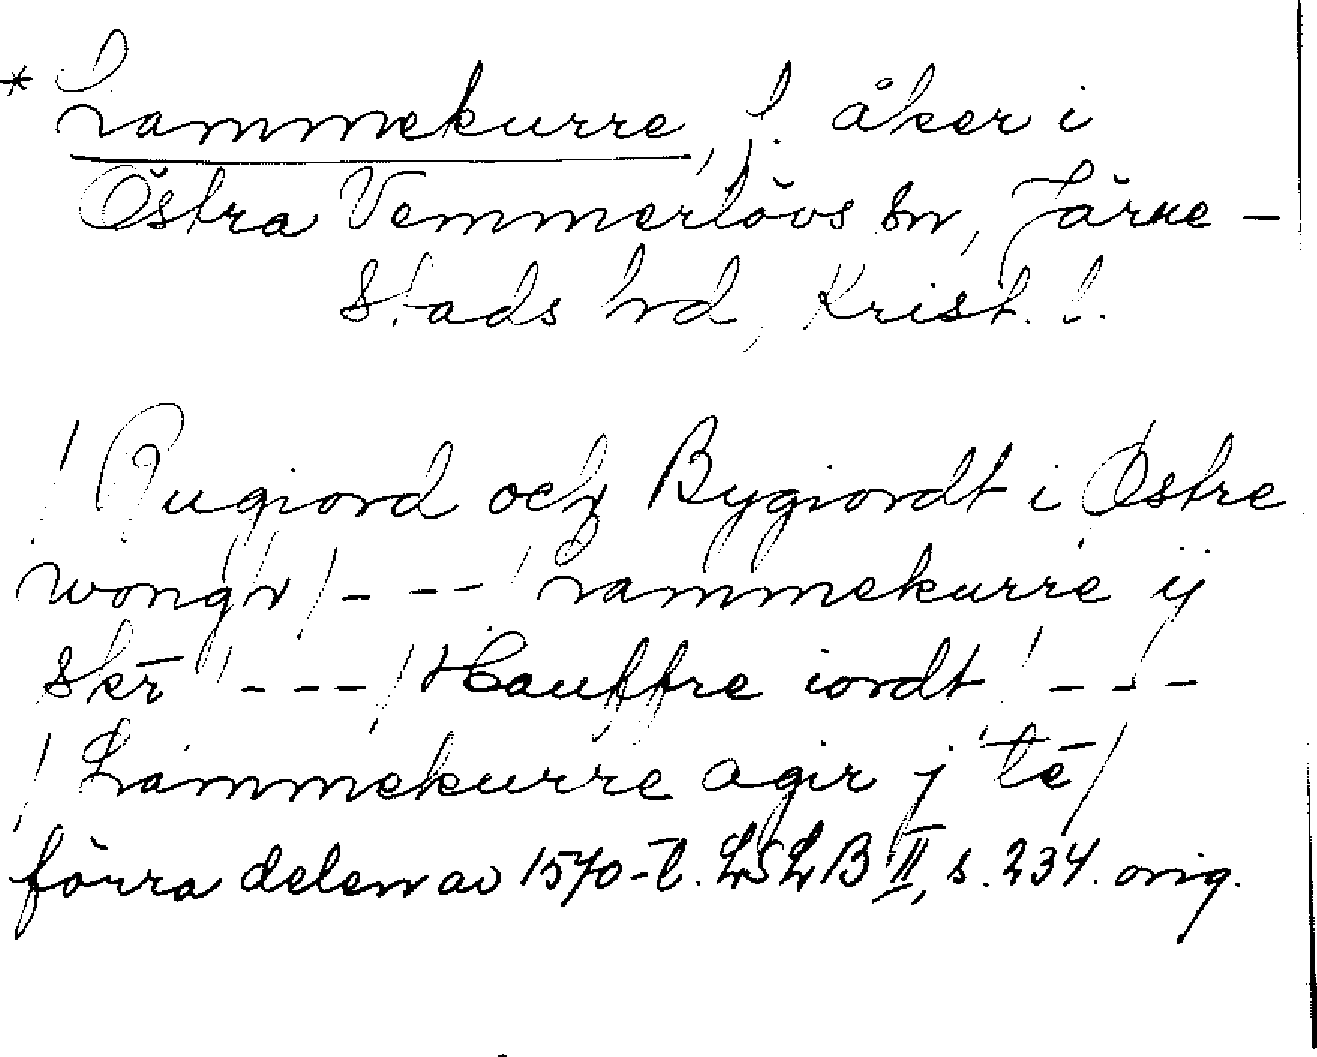 * Lammekurre, f. åker i
Östra Vemmerlövs sn, Järre-
stads hd, Krist. l.
/ Rugiord och Bygiordt i Østre
wongh / - - - / Lammekurre ij
skr̄ / - - - / Hauffre iordt / - - -
/ Lammekurre agir j tē /
förra delen av 1570-t. LSLB II, s. 234. orig.